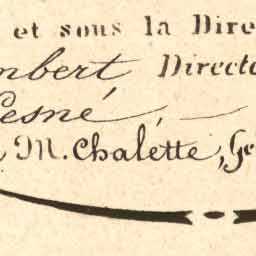 et sous la Dire
mbert, Directe
Lesné,
M. Chalette, Gé